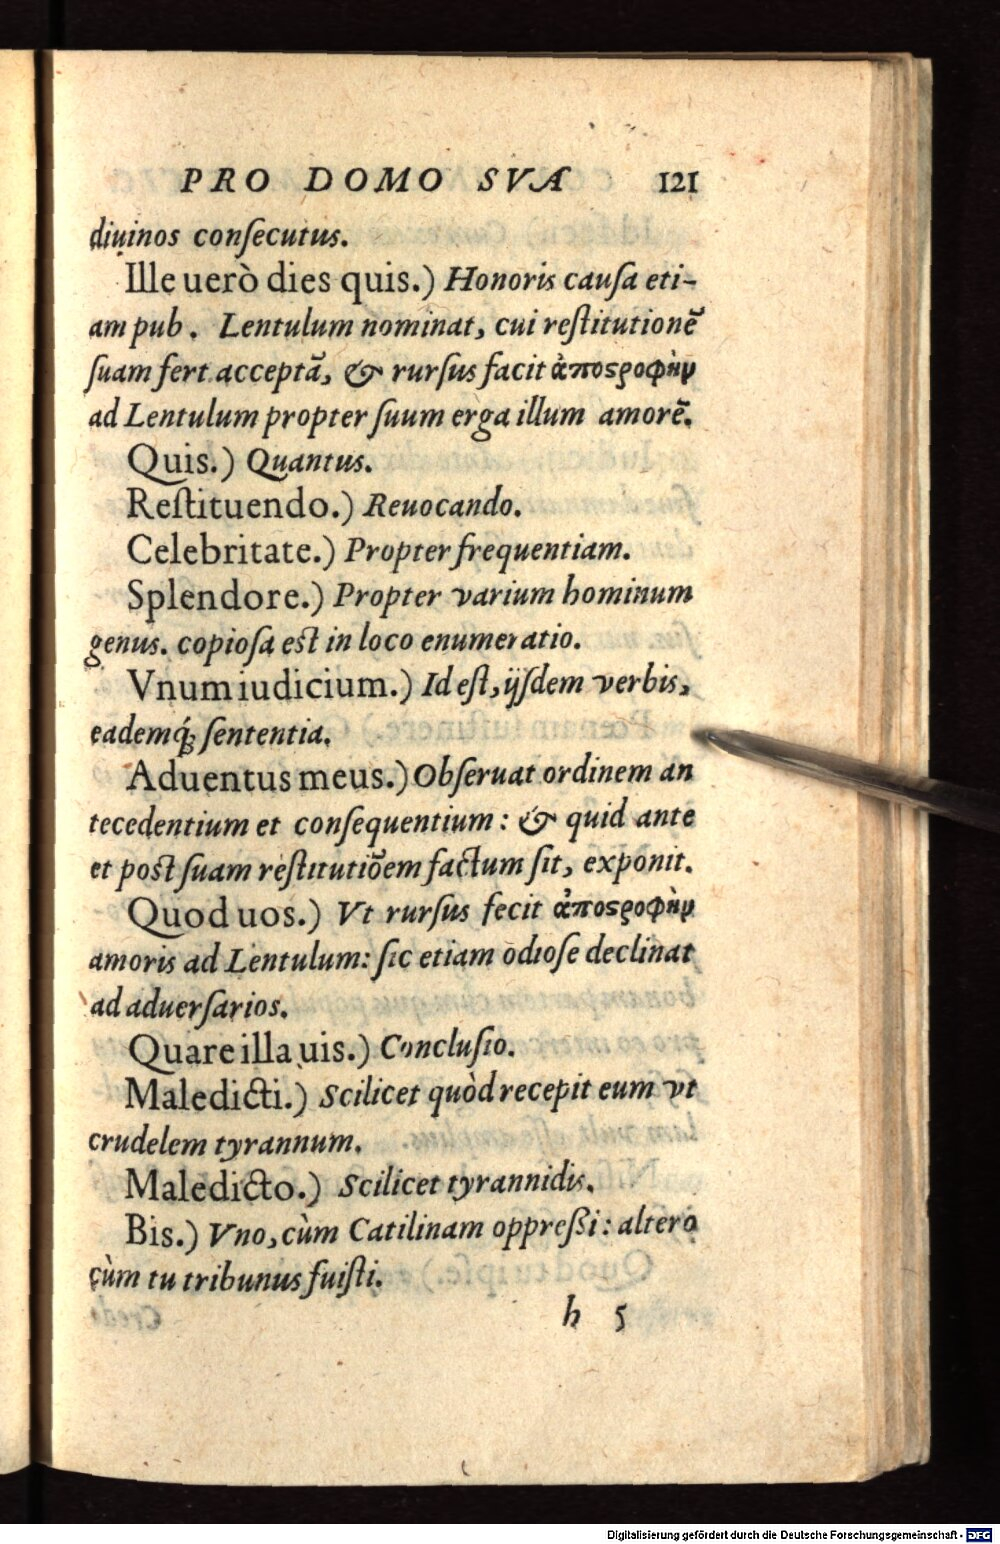 PRO DOMO SVA 121
diuinos conſecutus.
Ille uerò dies quis.) Honoris cauſa eti-
am pub. Lentulum nominat, cui reſtitutionē
ſuam fert acceptā, & rursus facit ἀποςροφὴν
ad Lentulum propter ſuum erga illum amorē.
Quis.) Quantus.
Reſtituendo.) Reuocando.
Celebritate.) Propter frequentiam.
Splendore.) Propter varium hominum
genus. copioſa eſt in loco enumeratio.
Vnum iudicium.) Id eſt, ijſdem verbis,
eademq́; ſententia.
Aduentus meus.) Obſeruat ordinem an
tecedentium et conſequentium: & quid ante
et poſt ſuam reſtitutiōem factum ſit, exponit.
Quod uos.) Vt rurſus fecit ἀποςροφὴν
amoris ad Lentulum: ſic etiam odioſe declinat
ad aduerſarios.
Quare illa uis.) Concluſio.
Maledicti.) Scilicet quòd recepit eum vt
crudelem tyrannum.
Maledicto.) Scilicet tyrannidis.
Bis.) Vno, cùm Catilinam oppreßi: altero
cùm tu tribunus fuiſti.
h 5
Digitalisierung gefördert durch die Deutsche Forschungsgemeinschaft - DFG